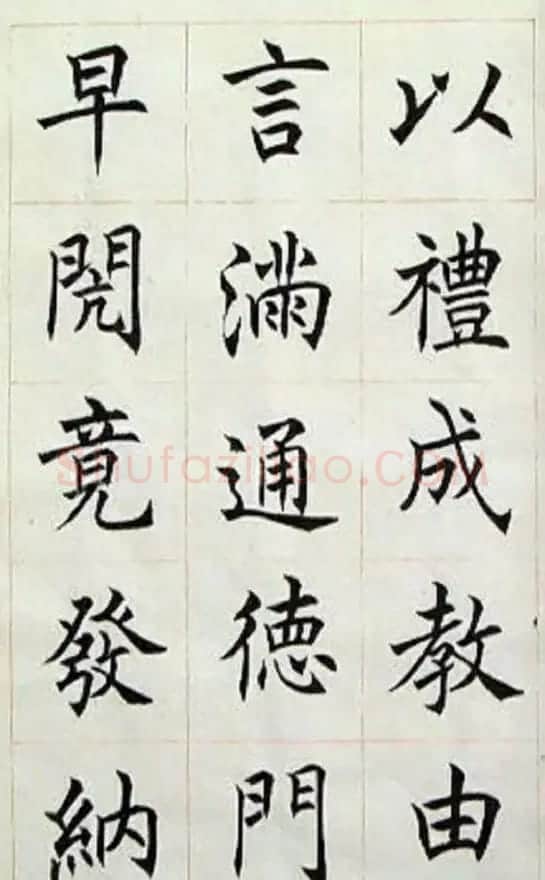 以禮成教由
言滿通德門
早閌竟發納
Shufaziliao.COM